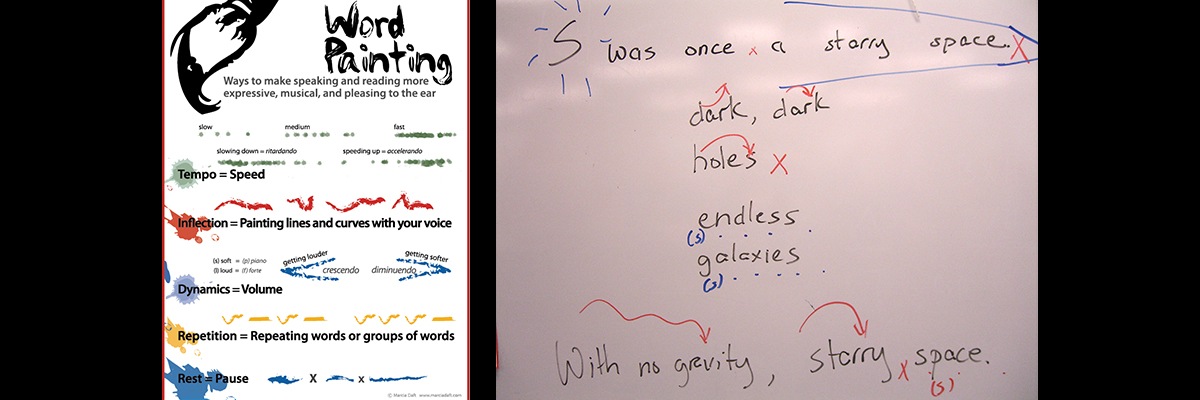 Word
Painting
Ways to make speaking and reading more
expressive, musical, and pleasing to the ear
slow medium fast
slowing down = ritardando speeding up = accelerando
Tempo = Speed
Inflection = Painting lines and curves with your voice
(s) soft = (p) piano
(l) loud = (f) forte
getting louder crescendo diminuendo getting softer
Dynamics = Volume
Repetition = Repeating words or groups of words
Rest = Pause X x
© Marcia Daft www.marciadaft.com
S was once x a starry space. X
dark, dark
holes X
endless
(s)
galaxies
(s)
With no grevity, starry x space.
(s)